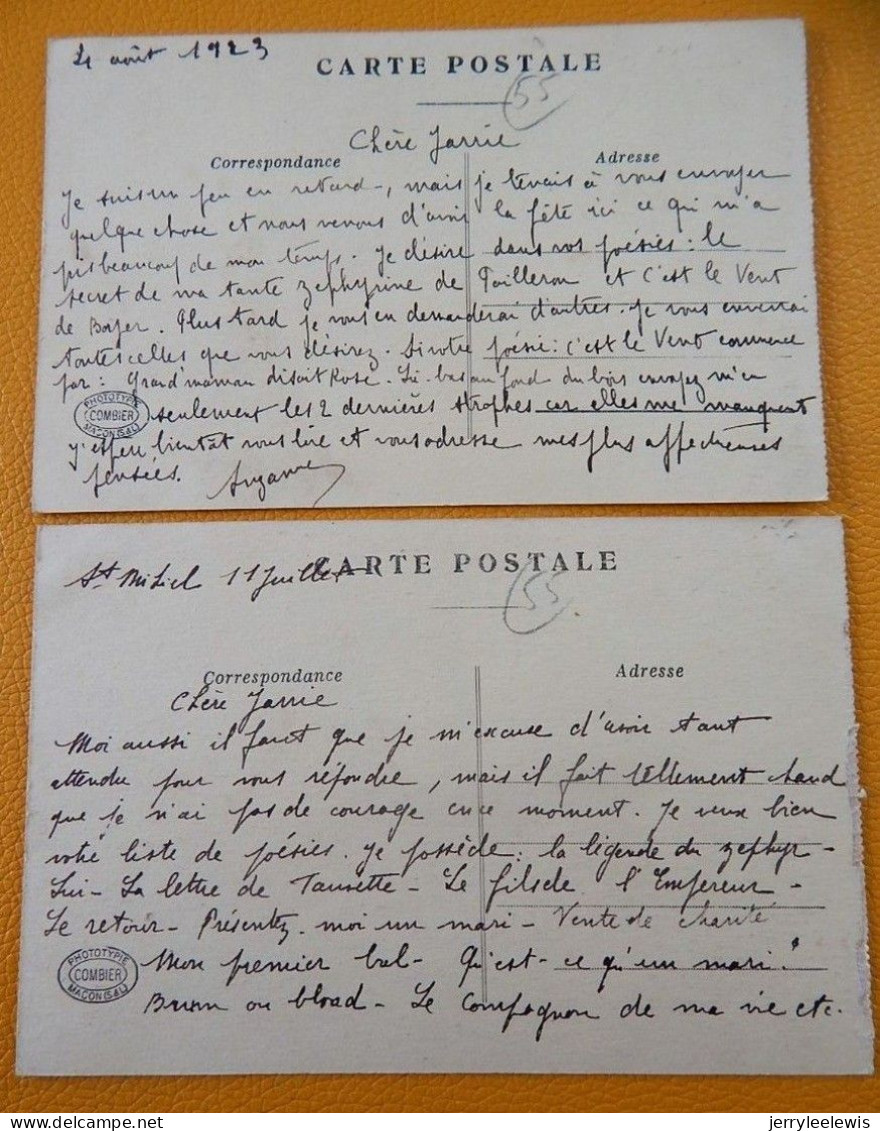 4 août 1923
CARTE POSTALE
55
Chère
Correspondance
Adresse
Je suis un peu en retard, mais je tenais à vous envoyer
quelque chose et nous venons d'avoir la fête ici ce qui m'a
pris beaucoup de mon temps. Je désire dans vos poésies : le
secret de ma tante Zéphyrine de Pailleron et C'est le Vent
de Boyer. Plus tard je vous en demanderai d'autres. Je vous enverrai
toutes celles que vous désirez. Si votre poésie : c'est le Vent commence
par : Grand'maman disait Rose. Là-bas au fond du bois envoyez m'en
seulement les 2 dernières strophes car elles me manquent
J'espère bientôt vous lire et vous adresse mes plus affectueuses
pensées. Suzanne
PHOTOTYPIE
COMBIER
MACON (S&L)
St Mihiel 11 Juillet
CARTE POSTALE
55
Correspondance
Adresse
Chère
Moi aussi il faut que je m'excuse d'avoir tant
attendu pour vous répondre, mais il fait tellement chaud
que je n'ai pas de courage en ce moment. Je veux bien
votre liste de poésies. Je possède : la légende du zephyr -
Lui - La lettre de - Le fils de l'Empereur -
Le retour - Présentez-moi un mari - Vente de charité
Mon premier bal - Qu'est-ce qu'un mari ?
Brun ou blond - Le Compagnon de ma vie etc.
PHOTOTYPIE
COMBIER
MACON (S&L)
jerryleelewis